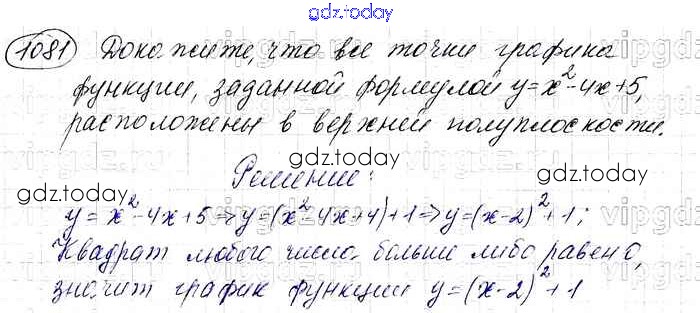 gdz.today
1081 Докажите, что все точки графика
функции, заданной формулой y=x²-4x+5,
расположены в верхней полуплоскости.
gdz.today
Решение:
gdz.today
gdz.today
y=x²-4x+5=>y=(x²-4x+4)+1=>y=(x-2)²+1;
Квадрат любого числа больше либо равен 0,
значит график функции y=(x-2)²+1